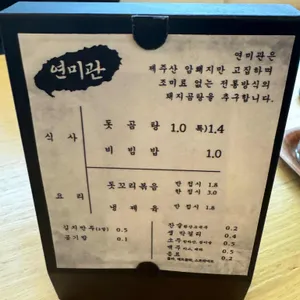 연미관
연미관은
제주산 암퇘지만 고집하며
조미료 없는 전통방식의
돼지곰탕을 추구합니다.
식사
돗곰탕 1.0 특)1.4
비빔밥 1.0
요리
돗꼬리볶음 반접시 1.8
한접시 3.0
냉제육 반접시 1.8
김치만두 0.5
공기밥 0.1
잔술 0.2
생막걸리 0.4
소주 0.5
맥주 0.5
음료 0.2